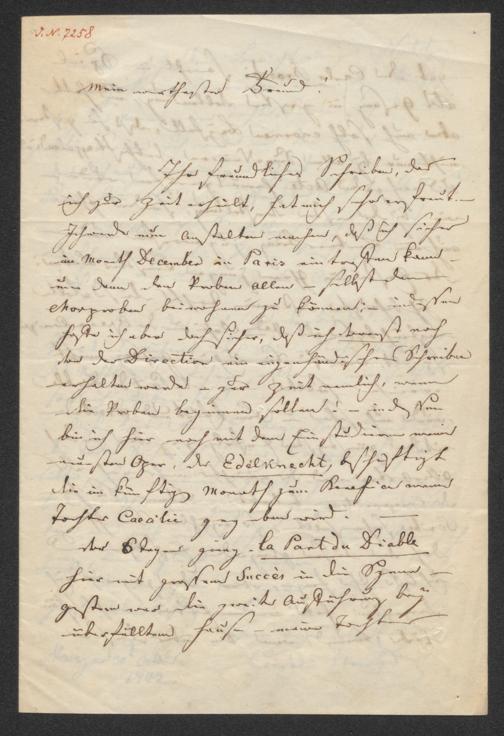 J. N. 7258
Mein werthester Freund!
Ihr freundliches Schreiben, das
ich zur Zeit erhielt, hat mich sehr erfreut. –
Ich werde nun Anstalten machen, daß ich sicher
im Month December in Paris eintreffen kann –
um dann den Proben allen – selbst den
Chorproben beiwohnen zu können; – indessen
hoffe ich aber doch sicher, daß ich noch
von der Direction ein eigenhändisches Schreiben
erhalten werde – zur Zeit nemlich, wenn
die Proben beginnen sollen! – indessen
bin ich hier noch mit dem Einstudieren meiner
neusten Oper, der Edelknecht, beschäftigt
die im künftig Monath zum Benefice meiner
Tochter Cäcilie gegeben wird. –
Vor 8 Tagen ging la Part du Diable
hier mit grossem Succès in die Szene –
gestern war die zweite Aufführung bey
überfülltem Hause – meine Tochter